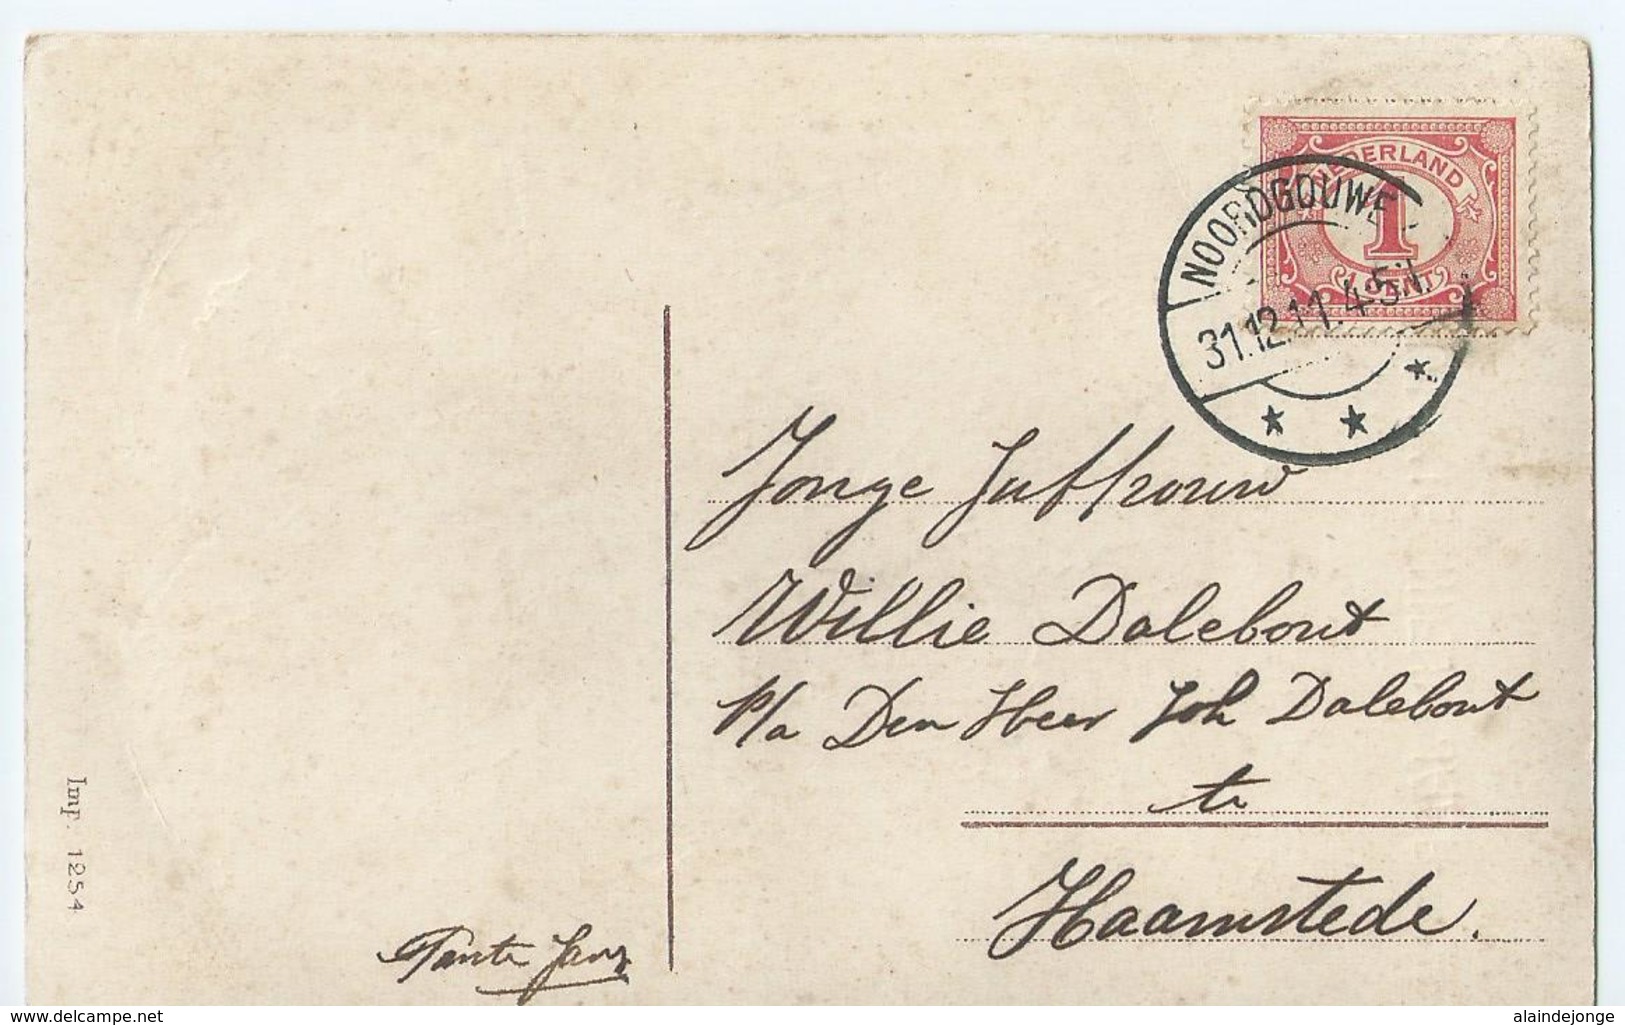 NEDERLAND
1
1 CENT
NOORDGOUWE
31.12.11.4-5.N.
Jonge Juffrouw
Willie Dalebout
P/a Den Heer Joh Dalebout
te
Haamstede.
Imp. 1254
Tante Jans
www.delcampe.net
alaindejonge